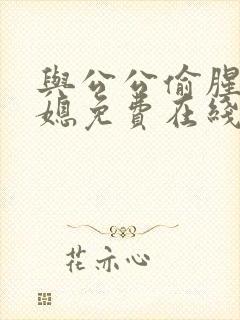 與公公偷腥
媳免費在綫
花亦心